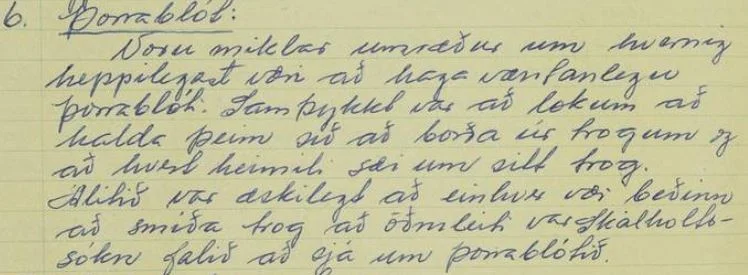 6. Þorrablót:
Voru miklar umræður um hvernig
heppilegast væri að haga væntanlegu
þorrablóti. Samþykkt var að lokum að
halda þeim sið að borða úr trogum og
að hvert heimili sæi um sitt trog.
Álitið var æskilegt að einhver væri beðinn
að smíða trog að öðruleiti var Skálholts-
sókn falið að sjá um þorrablótið.